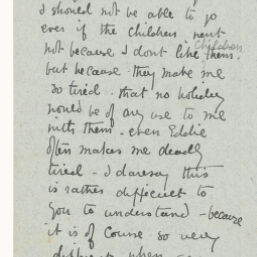 I should not be able to go
even if the children went
not because I dont like them. children
but because they make me
so tired - that no holiday
would be of any use to me
with them - even Eddie
often makes me deadly
tired - I daresay this
is rather difficult to
you to understand - because
it is of course so very
different when